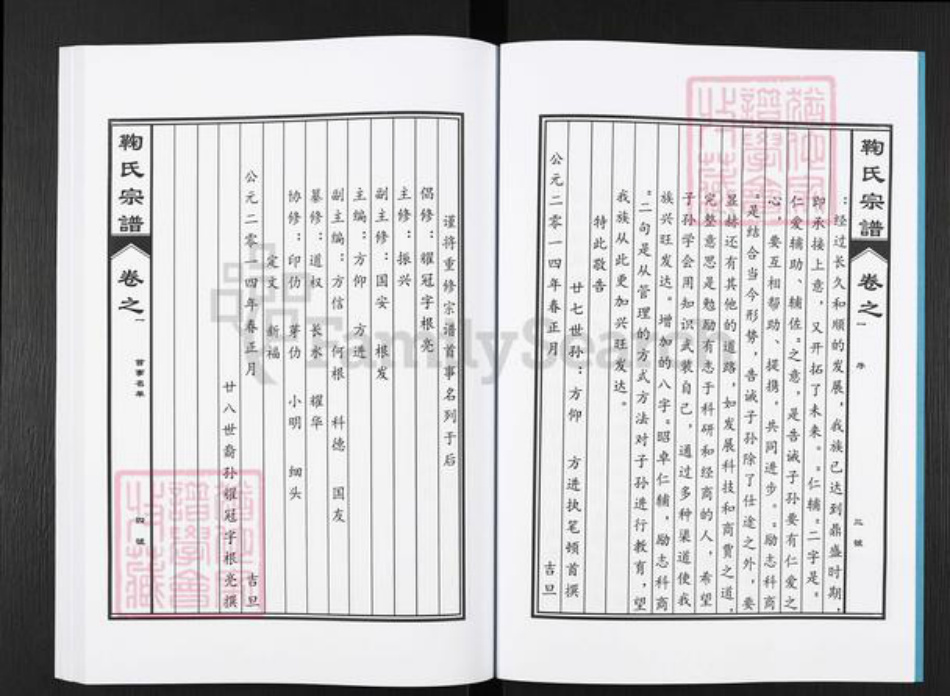 鞠氏宗譜
卷之一
序
三號
：经过长久和顺的发展，我族已达到鼎盛时期，
即承接上意，又开拓了未来。：仁辅。二字是。
仁爱辅助、辅佐。之意，是告诫子孙要有仁爱之
心，要互相帮助、提携，共同进步。：励志科商
。是结合当今形势，告诫子孙除了仕途之外，要
显赫还有其他的道路，如发展科技和商贾之道，
完整意思是勉励有志于科研和经商的人，希望
子孙学会用知识武装自己，通过多种渠道使我
族兴旺发达。增加的八字。昭卓仁辅，励志科商
。二句是从管理的方式方法对子孙进行教育，望
我族从此更加兴旺发达。
特此敬告
廿七世孙：方仰 方进执笔顿首撰
公元二零一四年春正月 吉旦
谨将重修宗谱首事名列于后
倡修：耀冠字根亮
主修：振兴
副主修：国安 根发
主编：方仰 方进
副主编：方信 何根 科德 国友
纂修：道权 长水 耀华
协修：印仂 芽仂 小明 细头
定文 新福
公元二零一四年春正月 吉旦
廿八世裔孙耀冠字根亮撰
鞠氏宗譜
卷之一
首事名单
四號
FamilySearch